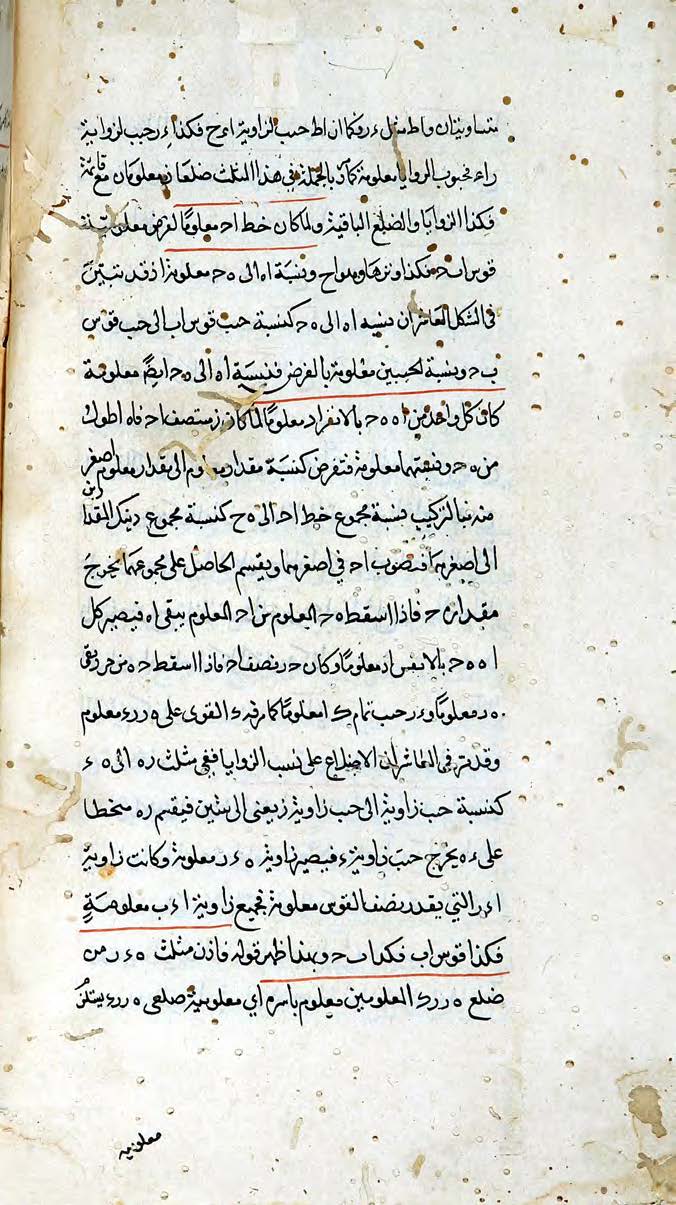 متساويتان و اط مثل ء ر فكما ان اط حيب لزاوية فكذا ء ر حيب لزاوية
فجيوب الزوايا معلومة بالجملة ففي هذا المثلث ضلعان معلومان مع قائمة
فكذا الزوايا والضلع الباقية ولما كان خط اح معلومًا لفرض معلومية
قوس اب ح فكذا وترها وهو اح ونسبة اه الى ه ح معلومة اذ قد تبين
في الشكل العاشر ان نسبة اه الى ه ح كنسبة جيب قوس اب الى جيب قوس
ب ح ونسبة الجيبين معلومة بالفرض فنسبة اه الى ه ح ايضً معلومة
كان كل واحد من اه ه ح بالانفراد معلومًا لما كان ر منتصف اح فاه اطول
من ه ح ونسبتهما معلومة فنفرض كنسبة مقدار معلوم الى مقدار معلوم اصغر
منه فبالتركيب نسبة مجموع خط اح الى ه ح كنسبة مجموع ذينك المقدارين
الى اصغرهما فنضرب اح في اصغرهما ويقسم الحاصل على مجموعهما يخرج
مقدار ه ح فاذا اسقط ه ح المعلوم من اح المعلوم يبقى اه فيصير كل
اه ه ح بالانفراد معلومًا وكان ح ر نصف اح فاذا اسقط ح ه من ح ر بقى
ه ر معلومًا و ء ر جيب تمام معلومًا كما القوى على ه ر ر ء معلوم
وقد مر في العاشر ان الاضلاع على نسب الزوايا ففي مثلث ره الى ه ء
كنسبة جيب زاوية الى جيب زاوية ر يعنى الى ستين فيقسم ره منحطا
على ء ه يخرج جيب زاوية ء فيصير زاوية ه ء ر معلومة وكانت زاوية
ا ء ر التي بقدر نصف القوس معلومة فجميع زاوية ا ء ب معلومةٍ
فكذا قوس اب فكذا ب ح وبهذا ظهر قوله فاذن مثلث ه ء ر من
ضلع ه ر ر ء المعلومين معلوم باسره اي معلومية ضلعى ه ر ر ء يستلزم
معلومية